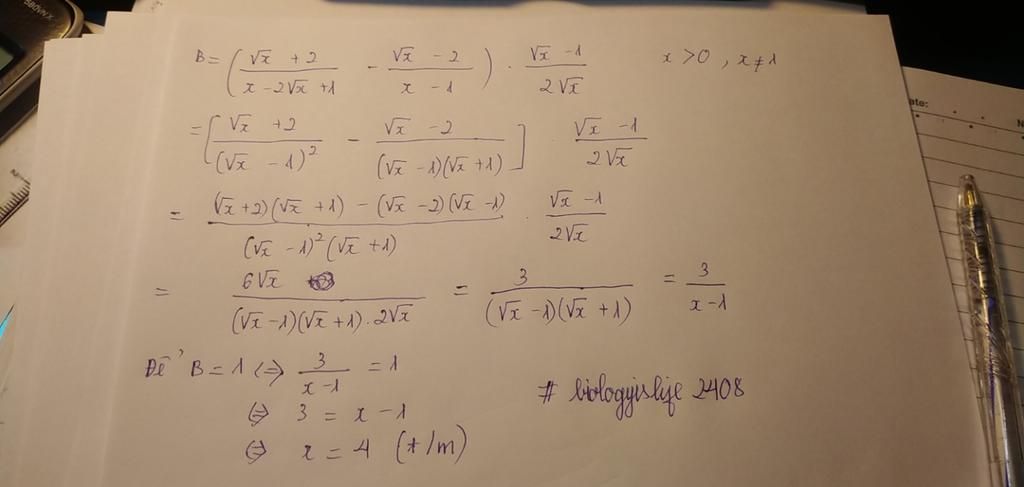 B = ( (√x + 2)/(x - 2√x + 1) - (√x - 2)/(x - 1) ) . (√x - 1)/(2√x) x > 0 , x ≠ 1
= [ (√x + 2)/(√x - 1)² - (√x - 2)/((√x - 1)(√x + 1)) ] . (√x - 1)/(2√x)
= ((√x + 2)(√x + 1) - (√x - 2)(√x - 1))/((√x - 1)²(√x + 1)) . (√x - 1)/(2√x)
= 6√x/((√x - 1)(√x + 1) . 2√x) = 3/((√x - 1)(√x + 1)) = 3/(x - 1)
Để B = 1 <=> 3/(x - 1) = 1
<=> 3 = x - 1
<=> x = 4 (t/m)
# biologyislife 2408
580VNX
ate:
N